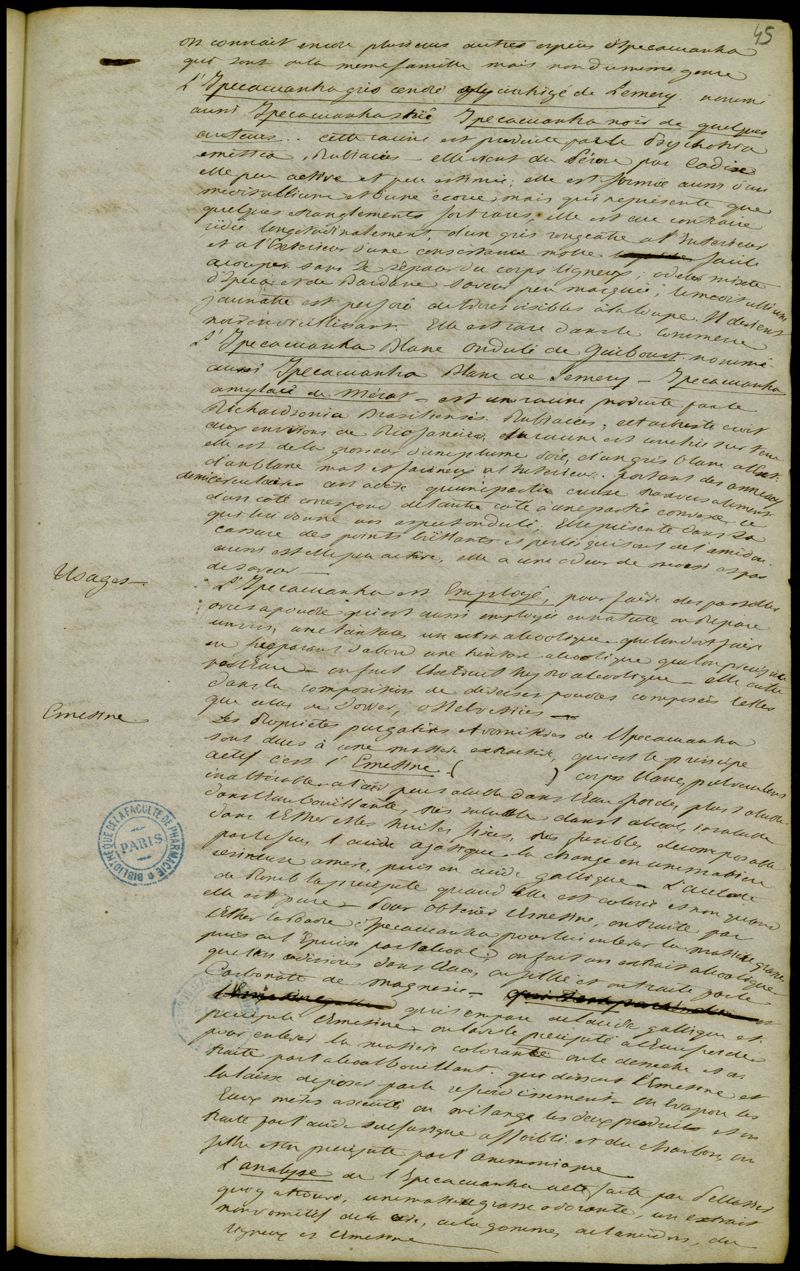 45
on connait encore plusieurs autres especes d'Ipecacuanha
qui sont de la meme famille mais non du meme genre
L'Ipecacuanha gris cendré glycirrhizé de Lemery nommé
aussi Ipecacuanha strié Ipecacuanha noir de quelques
auteurs.. cette racine est produite par le Psychotria
emetica, Rubiacées elle vient du Pérou par Cadix
elle peu active et peu estimée; elle est formée aussi d'un
meditullium et d'une ecorce, mais qui represente que
quelques etranglements fort rares; elle est au contraire
ridée longitudinalement, d'un gris rougeatre a l'Interieur
et a l'Exterieur d'une consistance molle facile
a couper sans se séparer du corps ligneux; odeur mixte
d'Ipeca et de Bardane saveur peu marquée; le meditullium
jaunâtre est perforé de trous visibles à la loupe. Il devient
noir en vieillissant. Elle est rare dans le commerce
L'Ipecacuanha Blanc ondulé de Guibourt nommé
aussi Ipecacuanha Blanc de Lemery - Ipecacuanha
amylacé de Mérat - est une racine produite par le
Richardsonia Brasiliensis Rubiacées, cet arbuste croit
aux environs de Rio Janeiro, la racine est
elle est de la grosseur d'une plume d'oie, d'un gris blanc
d'un blanc mat et farineux a l'Interieur: portant des anneaux
demi circulaires cest a dire qu'une partie creuse transversalement
d'un coté correspond de l'autre coté a une partie convexe, ce
qui lui donne un aspect ondulé. Elle présente dans sa
cassure des points brillants et perlés qui sont de l'amidon
aussi est elle peu active, elle a une odeur de moisi et pas
de saveur
Usages L'Ipecacuanha est Employé, pour faire des pastilles
on les a poudre qui est aussi employée en nature on prépare
un vin, une teinture, un extrait alcoolique que l'on doit faire
en preparant d'abord une teinture alcoolique que l'on
par l'eau - on fait l'extrait hydroalcoolique - elle entre
dans la composition de diverses poudres composées telles
que celles de Dower,
Emetine Les Proprietes purgatives et vomitives de l'Ipecacuanha
sont dues à une matiere extractive, qui est le principe
actif c'est l'Emetine ( ) corps blanc, pulverulent
inalterable a l'air peu soluble dans l'Eau froide, plus soluble
dans l'Eau bouillante, très soluble dans l'alcool, insoluble
dans l'Ether et les huiles fixes, très fusible, decomposable
par le feu, l'acide azotique la change en une matiere
resineuse amère, puis en acide
de Plomb la précipite quand elle est colorée et non quand
elle est pure - Pour obtenir l'Emetine, on traite par
l'Ether la Poudre d'Ipecacuanha pour lui enlever la matiere grasse
puis on l'Epuise par l'alcool, on fait un extrait alcoolique
que l'on redissous dans l'eau, on filtre et on traite par le
Carbonate de magnesie -
qui s'empare de l'acide gallique et
precipite l'Emetine - on lave le precipité a l'Eau froide
pour enlever la matiere colorante on le desseche et on
traite par l'alcool bouillant. qui dissout l'Emetine et
la laisse deposer par le refroidissement - on Evapore les
Eaux mères a siccité on melange les deux produits et on
traite par l'acide sulfurique affaibli et du charbon, on
filtre et on precipite par l'ammoniaque
L'analyse de l'Ipecacuanha a été faite par Pelletier
qui y a trouvé, une matiere grasse odorante, un extrait
non vomitif de la cire, de la gomme, de l'amidon, du
ligneux et l'Emetine
BIBLIOTHEQUE DE LA FACULTE DE PHARMACIE
PARIS